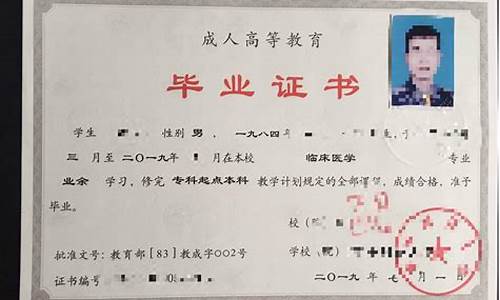 成人高等教育
毕业证书
学生 性别 男，一九八四年
三 月至 二〇一九年 月在本校 临床医学 专业
业余 学习，修完 专科起点本科 教学计划规定的全部课程，成绩合格，准予
毕业。
校（院）
批准文号：教育部［83］教成字002号 学校（院）
证书编号 二〇一九年七月一日